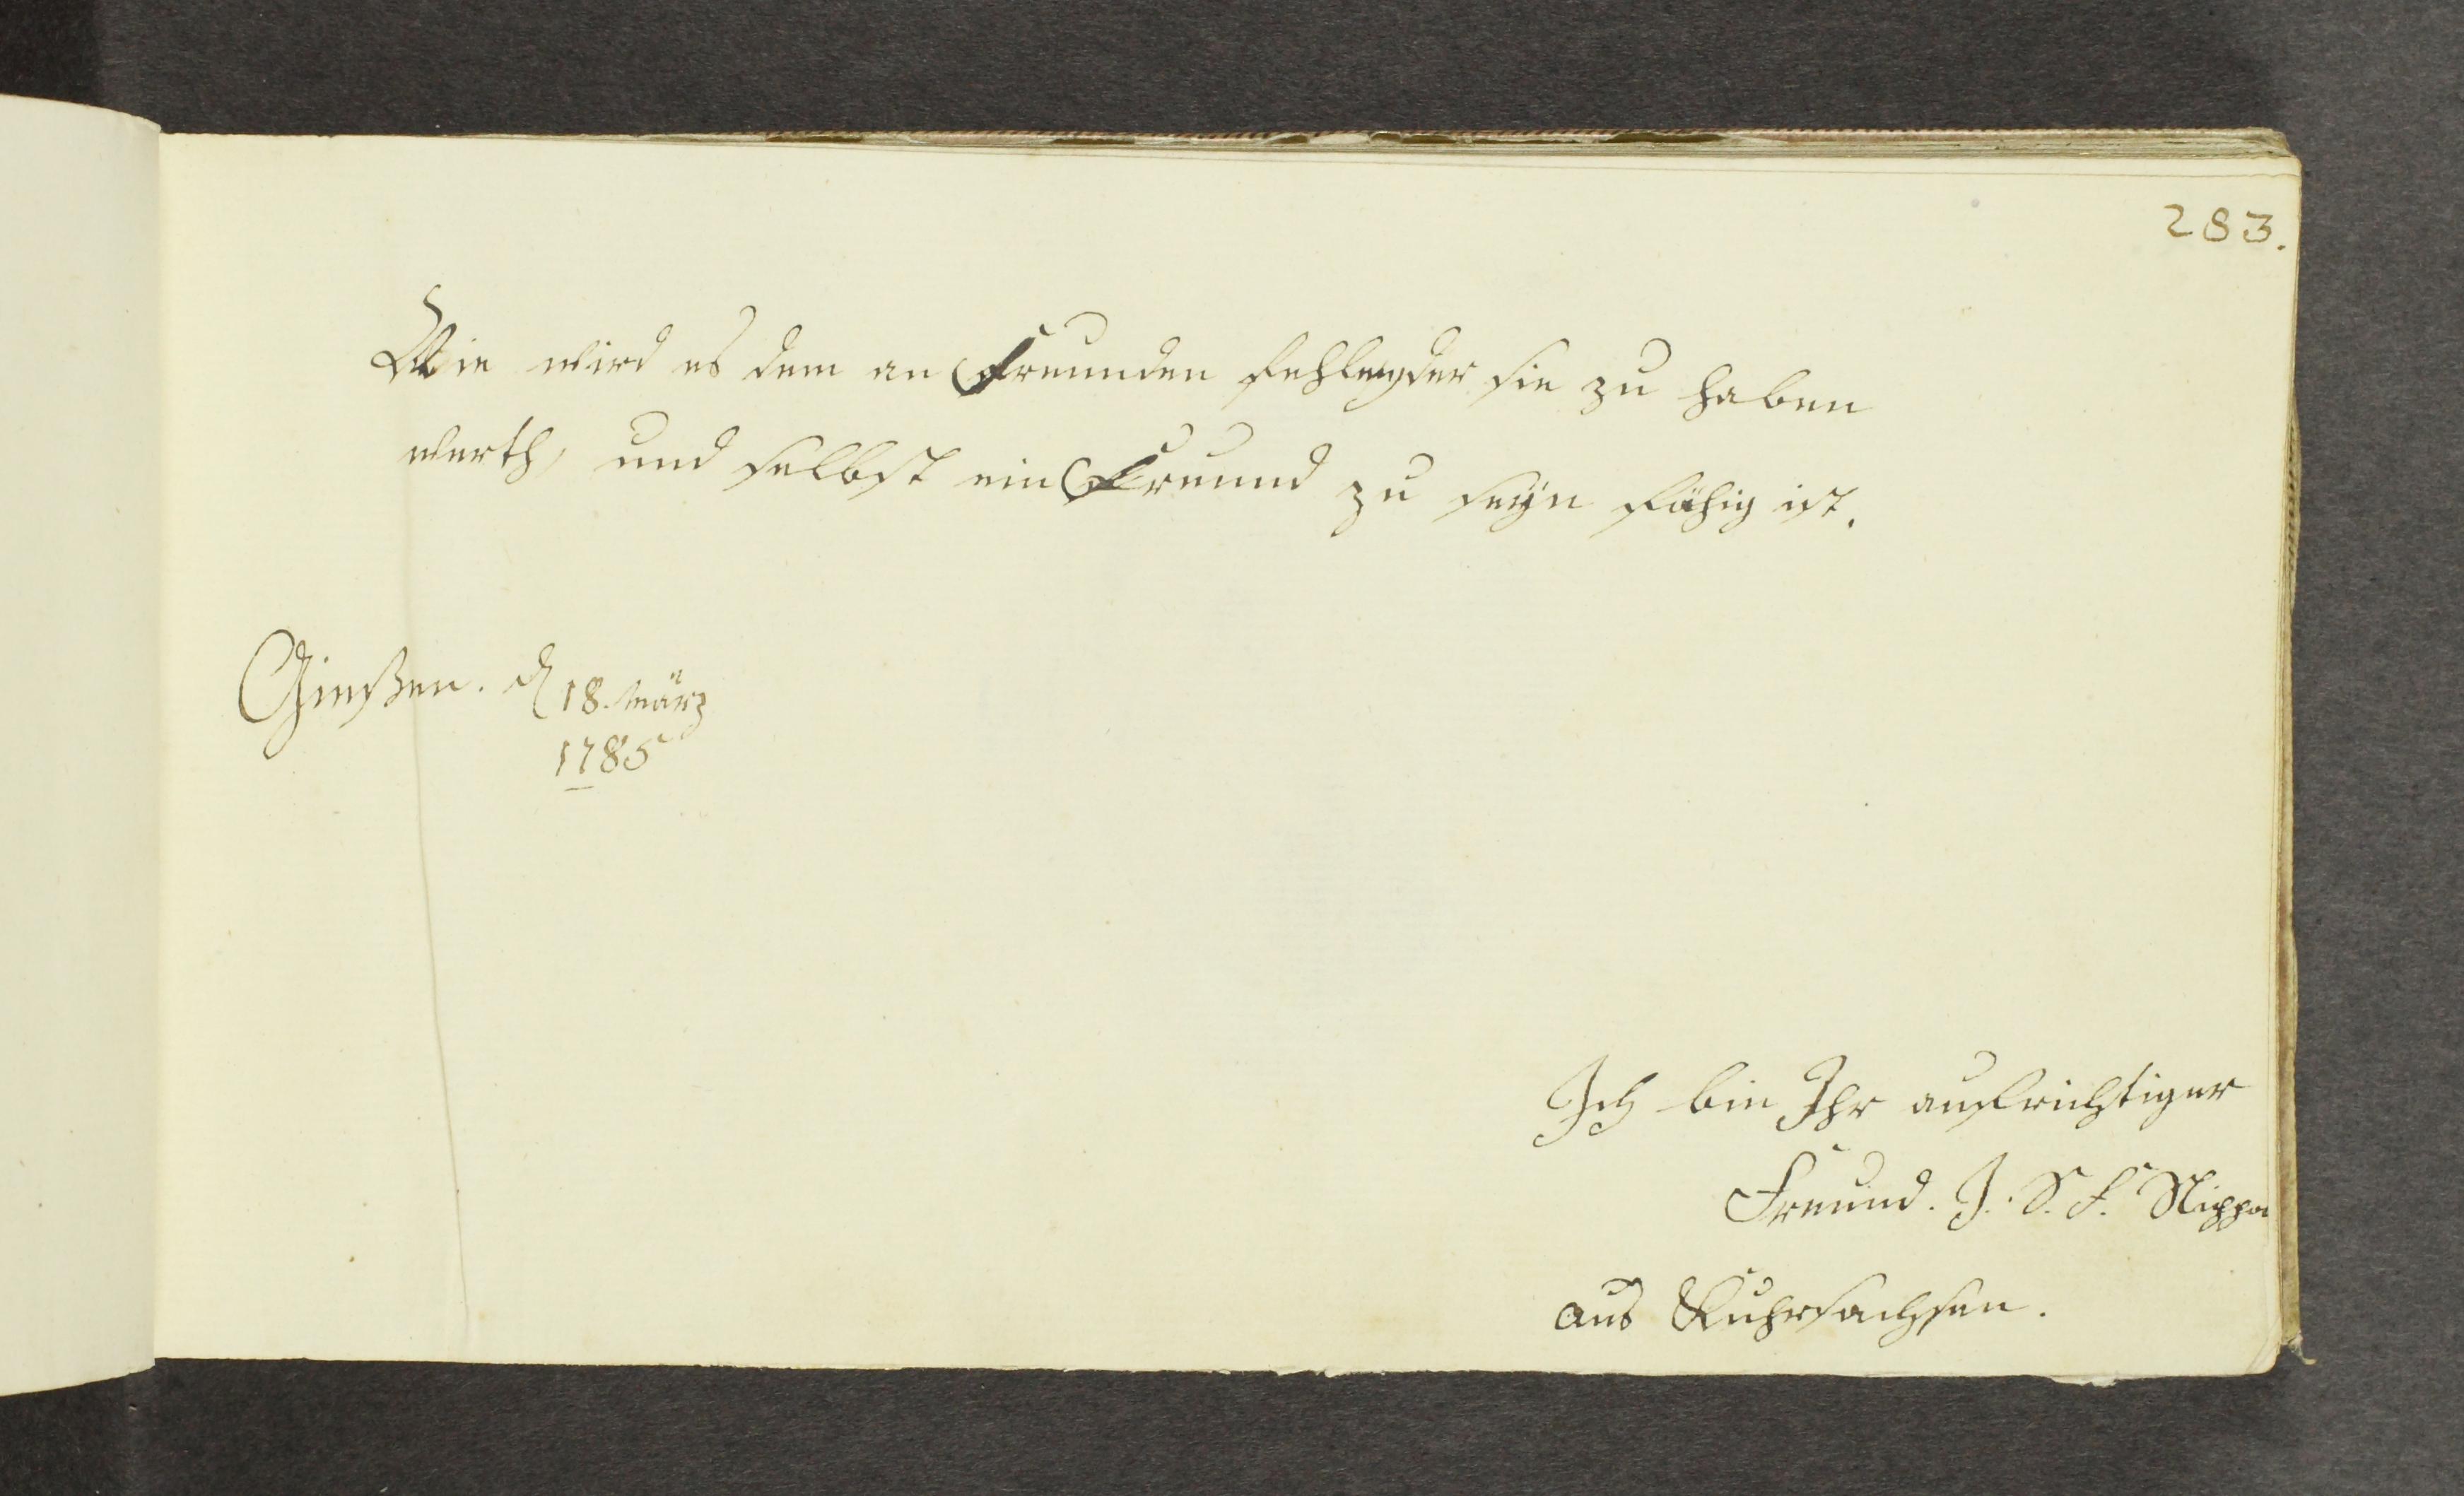 283.
Nie wird es dem an Freunden fehlen, der sie zu haben
werth, und selbst ein Freund zu seyn fähig ist.
Gießen. d 18. März
1785
Ich bin Ihr aufrichtiger
Freund. J. S. F.
aus Kuhrsachsen.